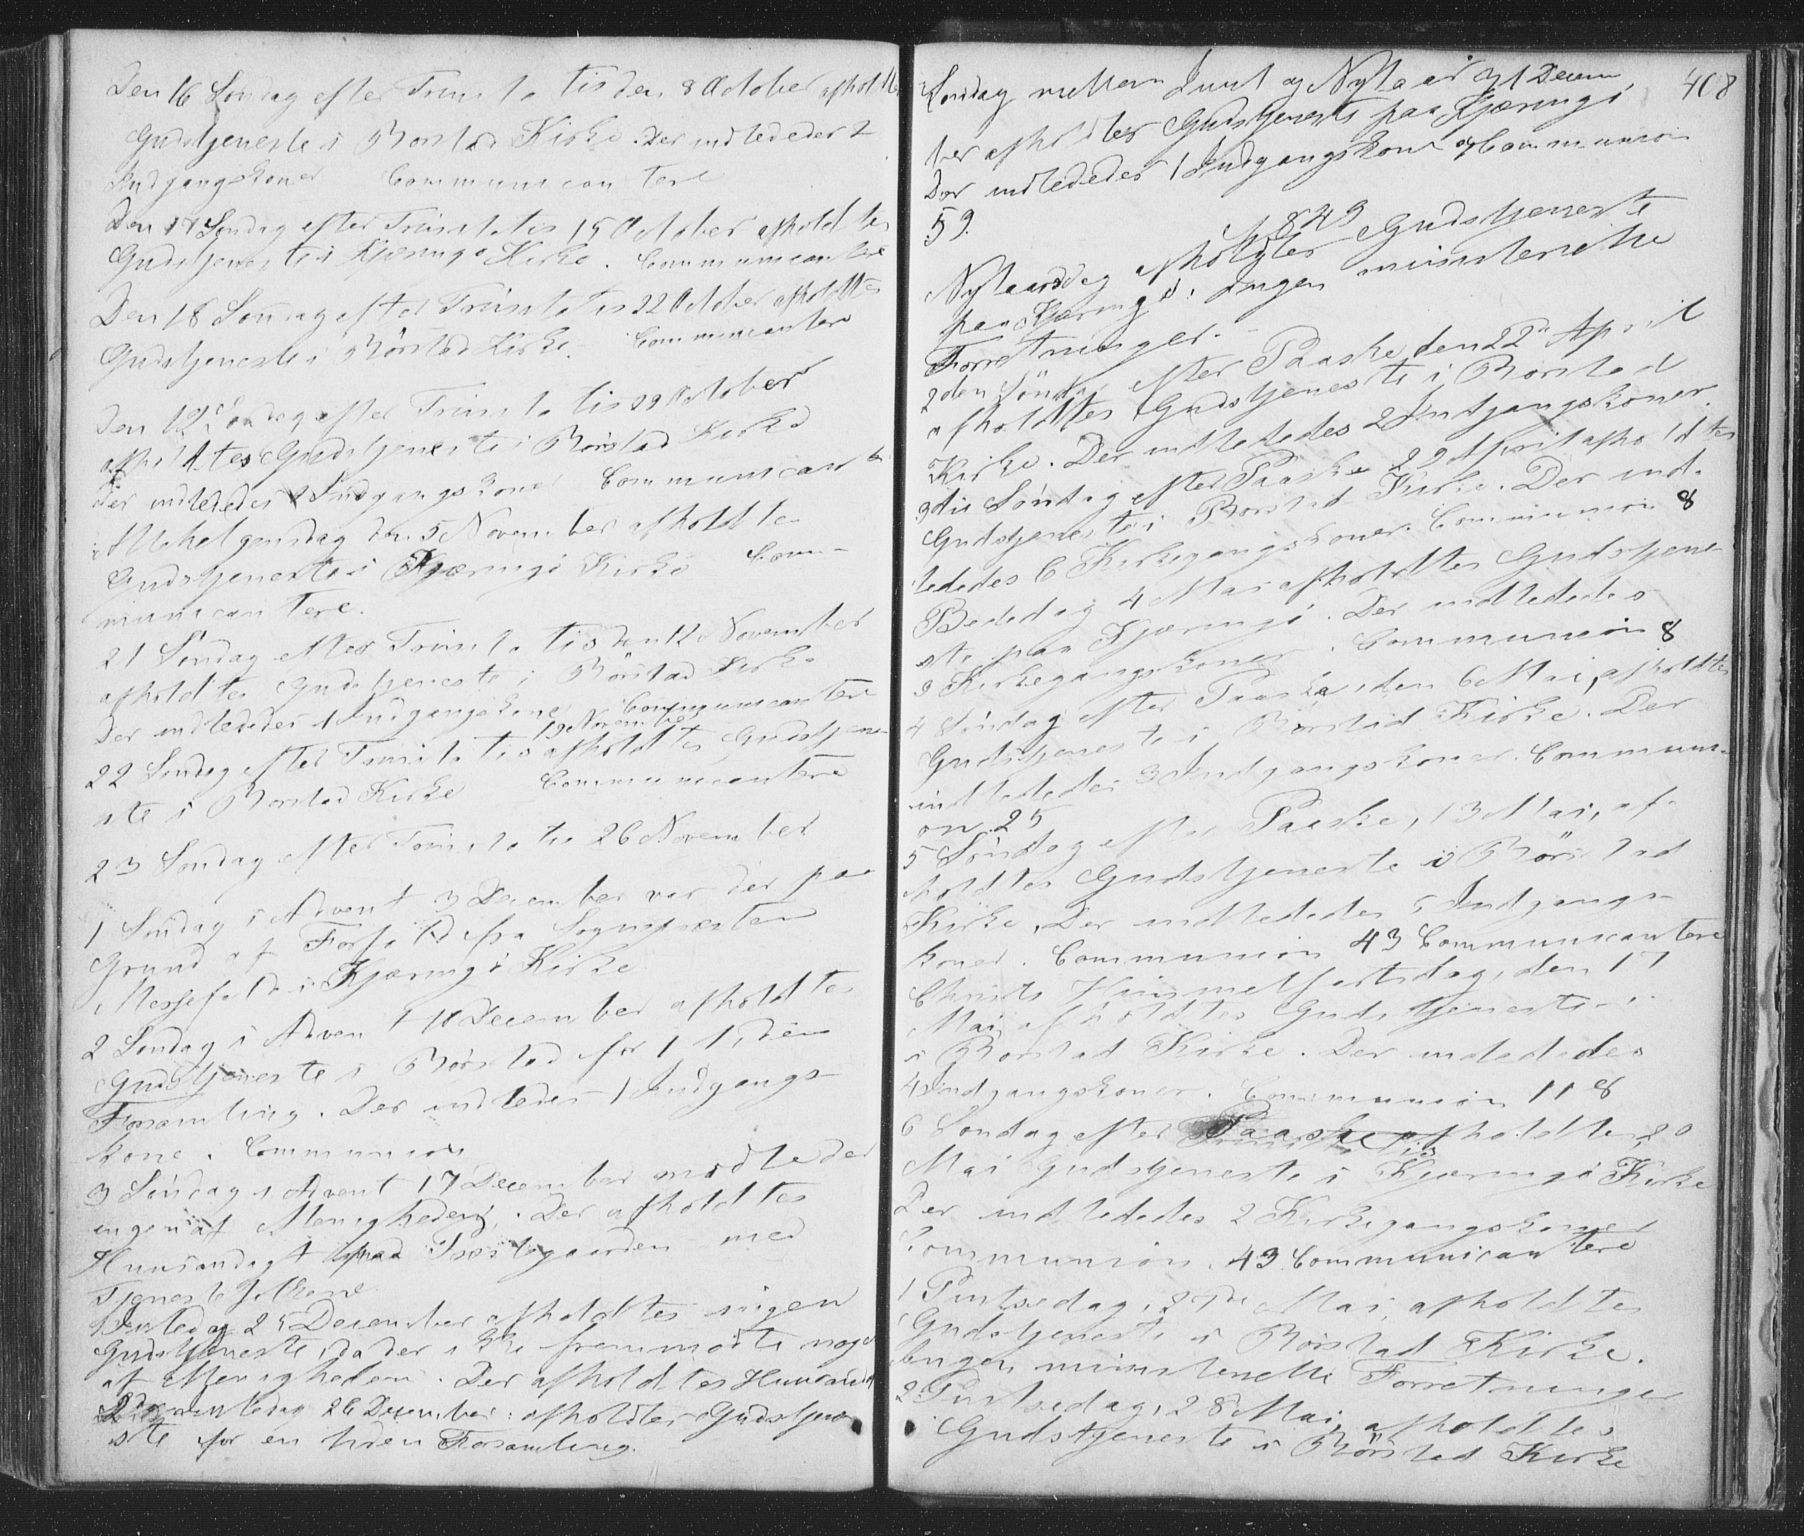 Den 16 Søndag efter Trinitatis den 8 October afholdtes
Gudstjeneste i Rørstad Kirke. Der indlededes 2
Indgangskoner Communicantere
Den 17 Søndag efter Trinitatis 15 October afholdtes
Gudstjeneste i Kjæringø Kirke. Communicantere
Den 18 Søndag efter Trinitatis 22 October afholdtes
Gudstjeneste i Rørstad Kirke. Communicantere
Den 19 Søndag efter Trinitatis 29 October
afholdtes Gudstjeneste i Rørstad Kirke
der indlededes 2 Indgangskoner Communicante
Allehelgensdag den 5 November afholdte
Gudstjeneste i Kjæringø Kirke Com-
municantere.
21 Søndag efter Trinitatis den 12 November
afholdtes Gudstjeneste i Rørstad Kirke
Der indlededes 1 Indgangskone Communicantere
19 November
22 Søndag efter Trinitatis afholdtes Gudstjene-
ste i Rørstad Kirke Communicantere
23 Søndag efter Trinitatis 26 November
1 Søndag i Advent 3 December var der paa
Grund af Forfald fra Sognepræsten
Messefald i Kjæringø Kirke
2 Søndag i Advent 10 December afholdtes
Gudstjeneste i Rørstad for 1 liden
Forsamling. Der indledes 1 Indgangs-
kone. Communion
3 Søndag i Advent 17 December mødte der
ingen af Menigheden. Der afholdtes
Huusandagt paa Præstegaarden med
Tjenestefolkene.
Juledag 25 December afholdtes ingen
Gudstjeneste, da der ikke fremmødte noget
af Menigheden. Der afholdtes Huusandt
2den Juledag 26 December afholdtes Gudstjene
ste for en liden Forsamling.
408
Søndag mellem Juul og Nytaar 31 Decem
ber afholdtes Gudstjeneste paa Kjæringø
Der indlededes 1 Indgangskone og Communion
59.
1849
Nytaarsdag afholdtes Gudstjeneste
paa Kjæringø. Ingen ministerielle
Forretninger.
2den Søndag efter Paaske den 22de April
afholdtes Gudstjeneste i Rørstad
Kirke. Der indlededes 2 Indgangskoner.
3die Søndag efter Paaske 29 April afholdtes
Gudstjeneste i Rørstad Kirke. Der ind-
lededes 6 Kirkegangskoner. Communion 8
Bededag 4 Mai afholdtes Gudstjene-
ste paa Kjæringø. Der indlededes
3 Kirkegangskoner. Communion 8
4 Søndag efter Paaske den 6 Mai, afholdtes
Gudstjeneste i Rørstad Kirke. Der
indlededes 3 Indgangskoner. Communi-
on 25
5 Søndag efter Paaske, 13 Mai, af-
holdtes Gudstjeneste i Rørstad
Kirke. Der indlededes 5 Indgangs-
koner. Communion 43 Communicantere
Christi Himmelfartsdag, den 17
Mai, afholdtes Gudstjeneste
i Rørstad Kirke. Der indlededes
4 Indgangskoner. Communion 118
6 Søndag efter Paaske afholdtes 20
Mai Gudstjeneste i Kjæringø Kirke
Der indlededes 2 Kirkegangskoner
Communion. 43 Communicantere
1 Pintsedag, 27de Mai, afholdtes
Gudstjeneste i Rørstad Kirke.
Ingen ministerielle Forretninger
2 Pintsedag, 28 Mai, afholdtes
Gudstjeneste i Rørstad Kirke